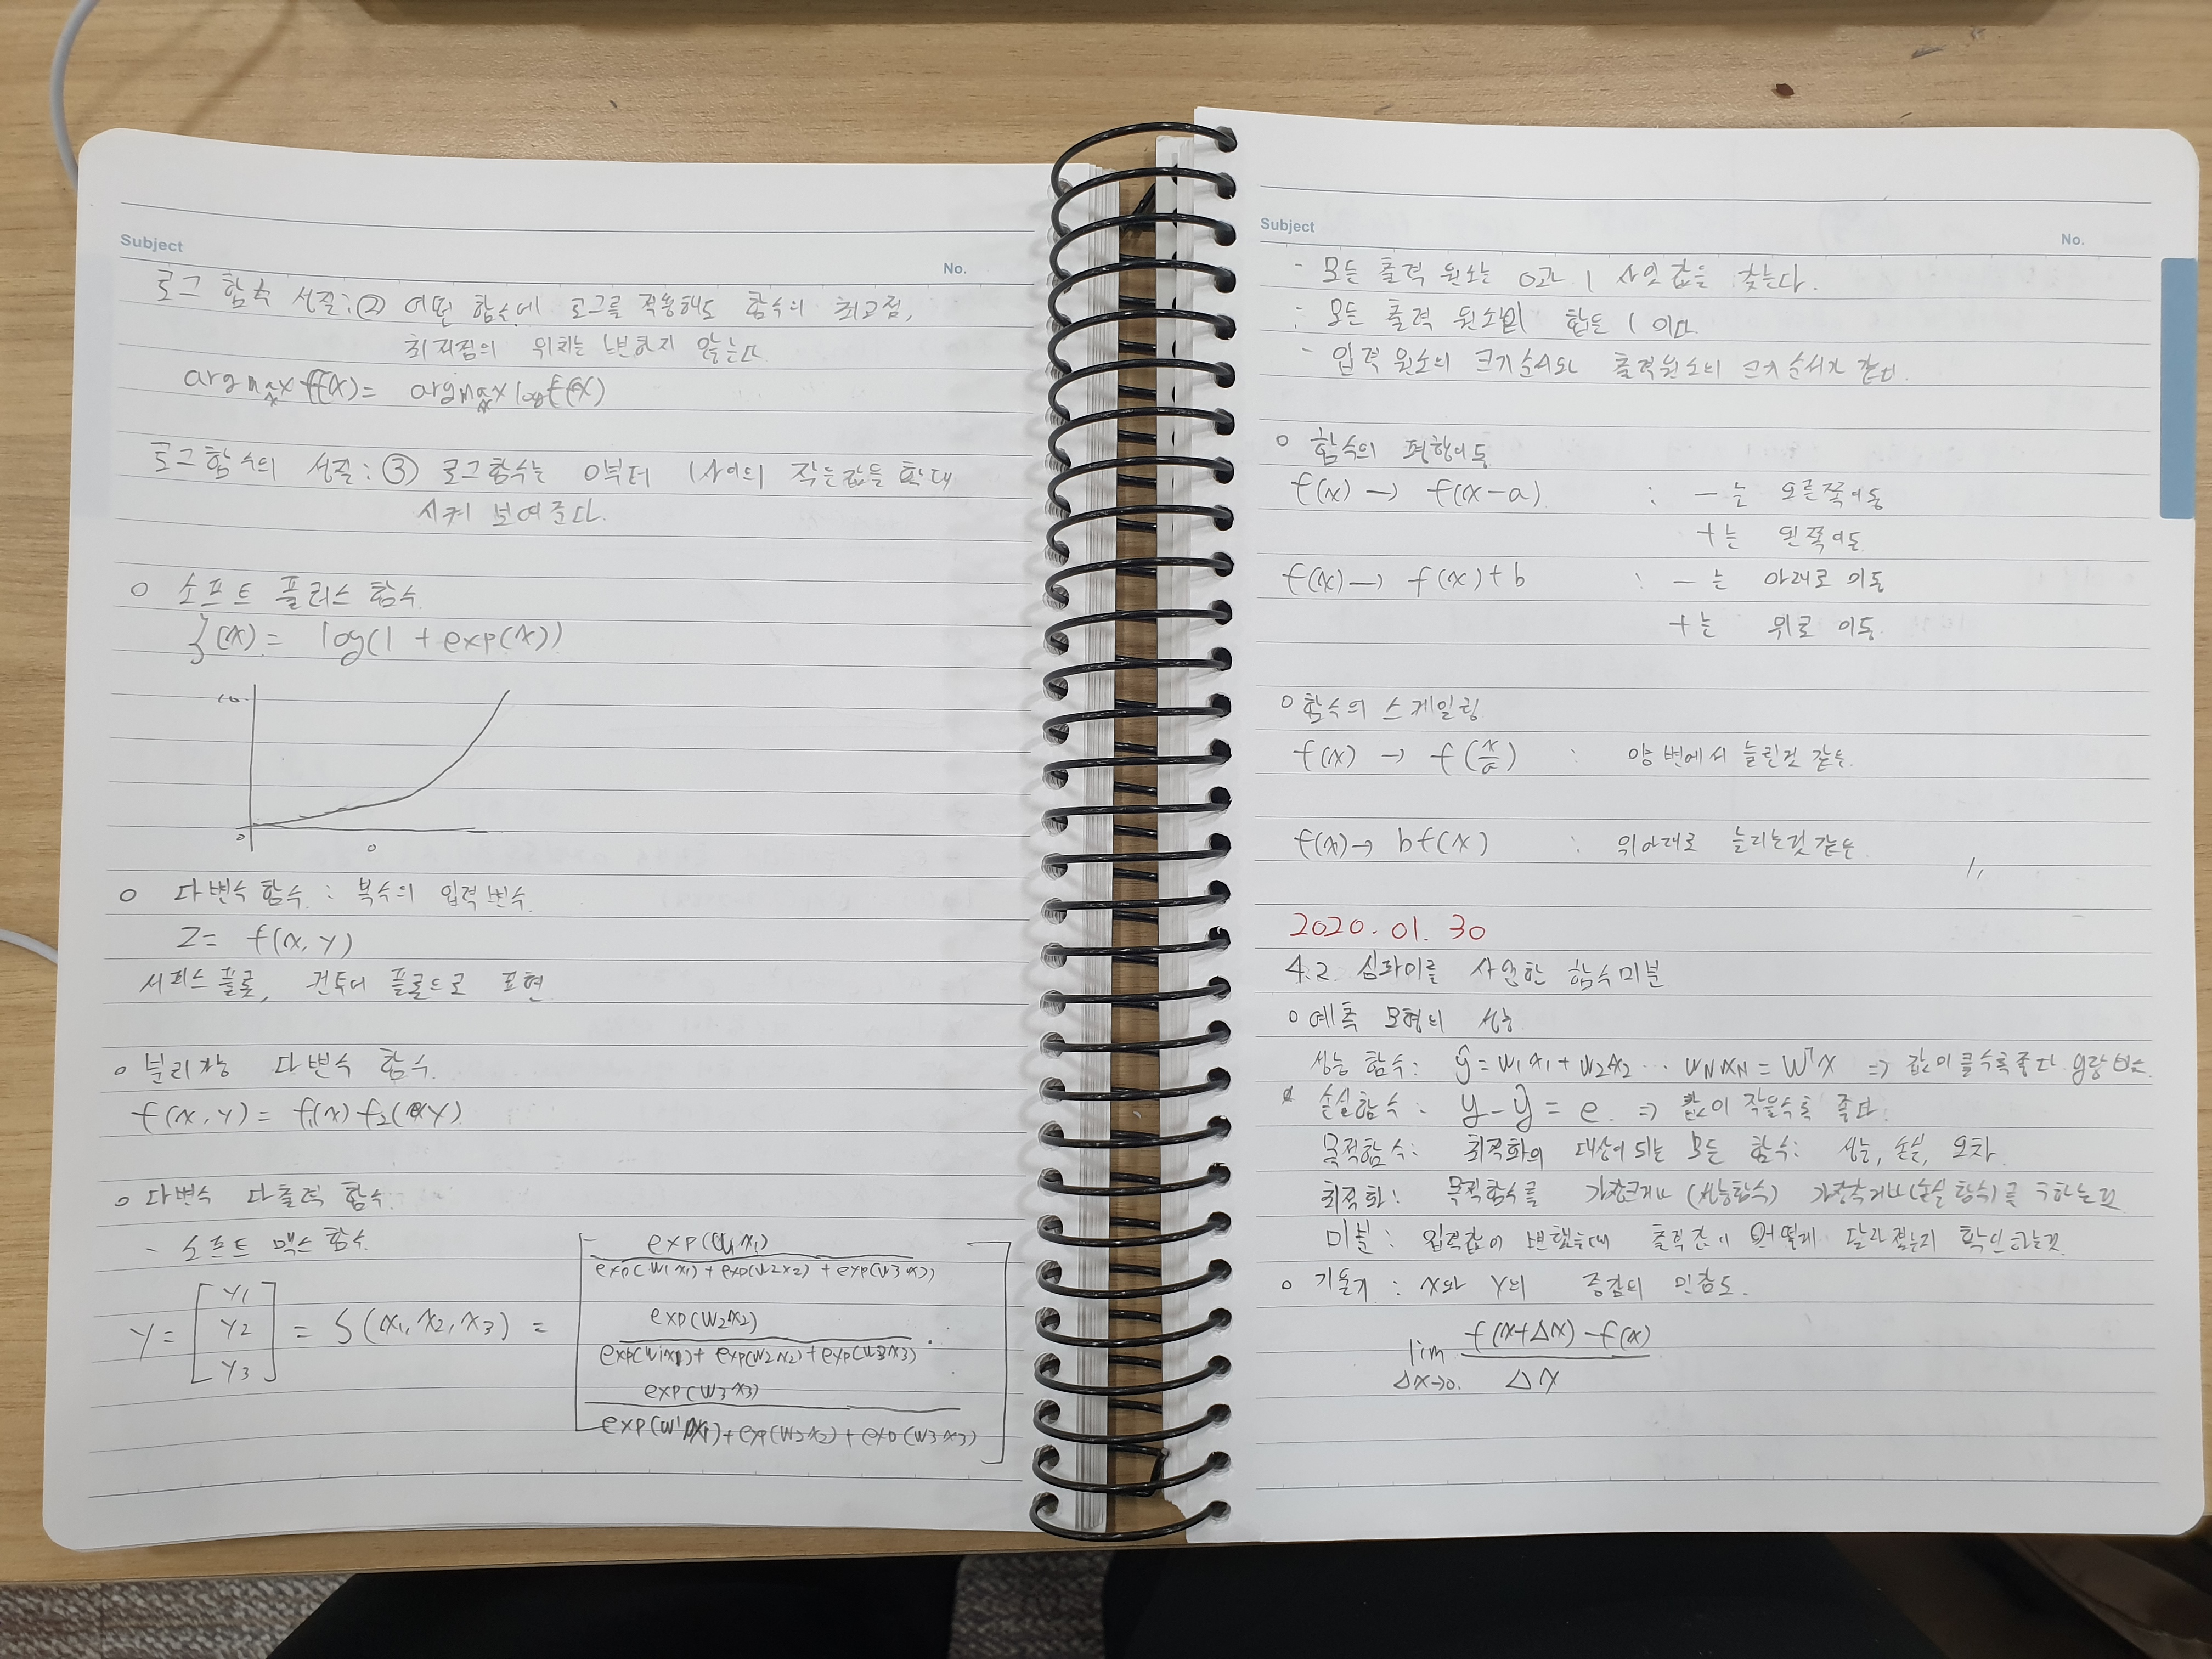 Subject
No.
로그 함수 성질: ② 어떤 함수에 로그를 적용해도 함수의 최고점,
최저점의 위치는 변하지 않는다.
argmax f(x) = argmax log f(x)
x x
로그함수의 성질: ③ 로그함수는 0부터 1사이의 작은값을 확대
시켜 보여준다.
○ 소프트 플러스 함수.
ζ(x) = log(1 + exp(x))
10
0
0
○ 다변수 함수 : 복수의 입력변수.
Z = f(x, y)
서피스 플롯, 컨투어 플롯으로 표현
○ 분리가능 다변수 함수.
f(x, y) = f₁(x) f₂(y)
○ 다변수 다출력 함수.
- 소프트 맥스 함수.
exp(w1x1)
exp(w1x1) + exp(w2x2) + exp(w3x3)
y1
exp(w2x2)
Y = y2 = S(x1, x2, x3) =
exp(w1x1) + exp(w2x2) + exp(w3x3)
y3
exp(w3x3)
exp(w1x1) + exp(w2x2) + exp(w3x3)
Subject
No.
- 모든 출력 원소는 0과 1 사이값을 갖는다.
- 모든 출력 원소의 합은 1 이다.
- 입력 원소의 크기순서와 출력원소의 크기순서가 같다.
○ 함수의 평행이동
f(x) → f(x-a) : -는 오른쪽이동
+는 왼쪽이동
f(x) → f(x)+b : -는 아래로 이동
+는 위로 이동.
○ 함수의 스케일링
f(x) → f(x/a) : 양 변에서 늘린것 같음.
f(x) → bf(x) : 위아래로 늘리는것같음.
2020. 01. 30
4.2. 심파이를 사용한 함수미분
○ 예측 모형의 성능
성능 함수: ŷ = w1x1 + w2x2 ... wNxN = WᵀX ⇒ 값이 클수록 좋다.
손실함수: y - ŷ = e. ⇒ 값이 작을수록 좋다.
목적함수: 최적화의 대상이 되는 모든 함수: 성능, 손실, 오차.
최적화: 목적함수를 가장크게나 (성능함수) 가장작게나(손실 함수)를 구하는것
미분: 입력값이 변했을때 출력값이 어떻게 달라지는지 확인하는것.
○ 기울기 : x와 y의 증감의 민감도.
lim f(x+Δx) - f(x)
Δx→0. Δx